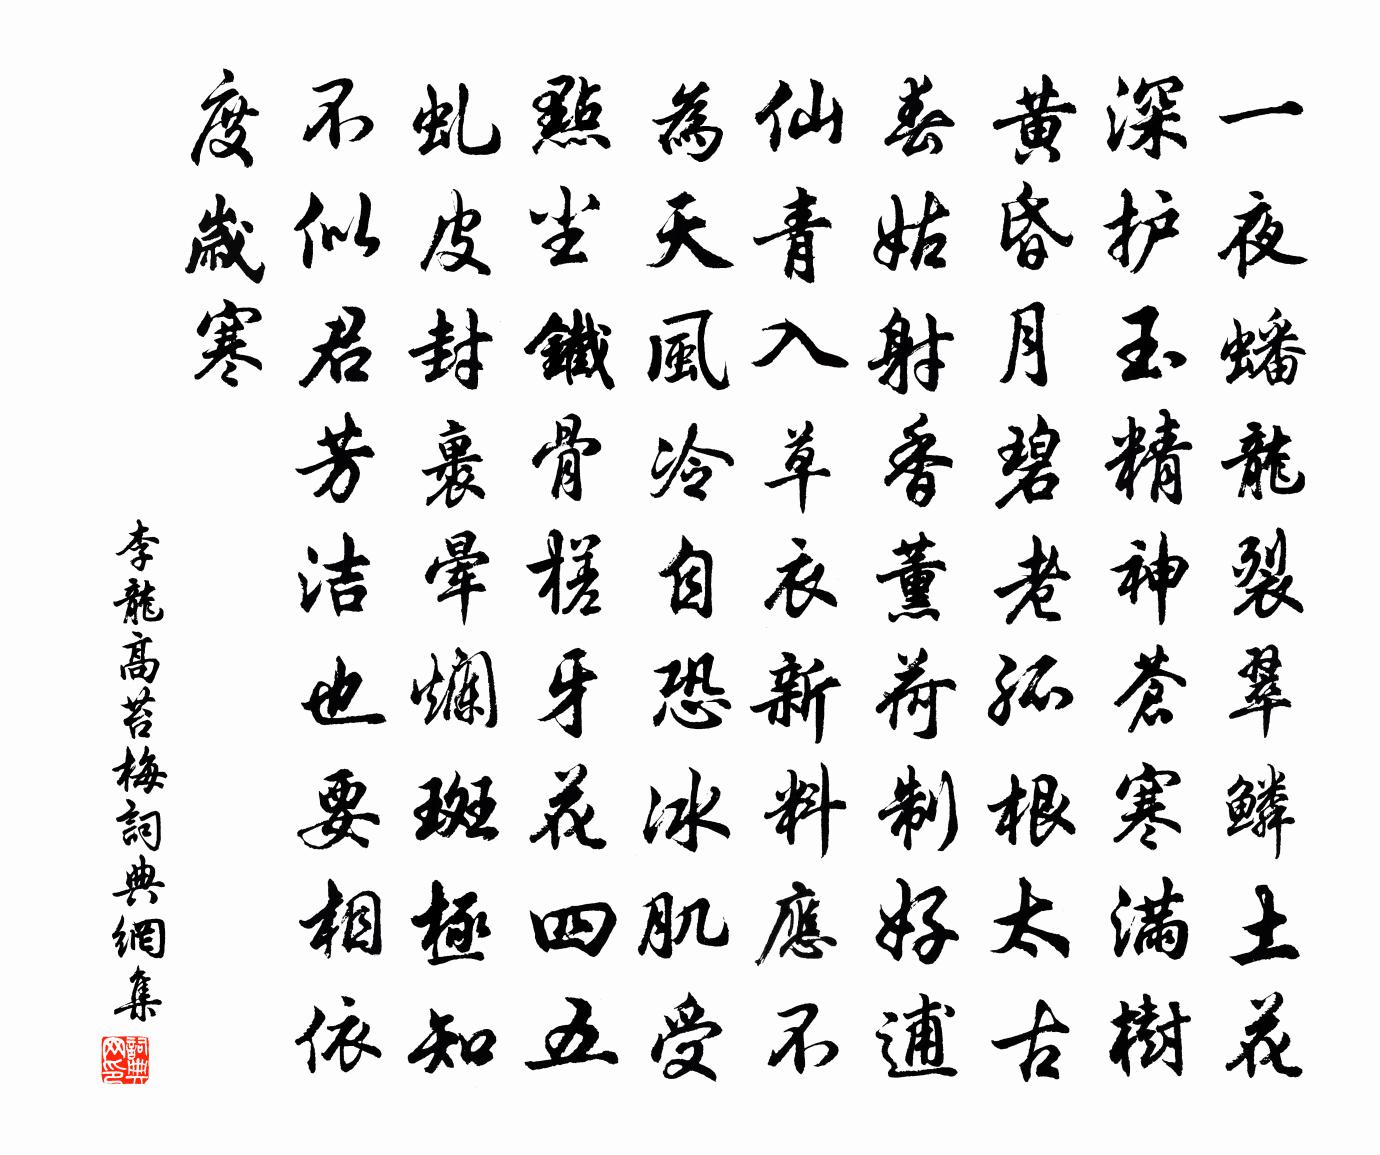 一夜蟠龍裂翠鱗土花
深护玉精神蒼寒滿樹
黄昏月碧老孤根太古
春姑射香薰荷制好逋
仙青入草衣新料應不
為天風冷自恐冰肌受
點尘鐵骨槎牙花四五
虬皮封裹暈斕斑極知
不似君芳洁也要相依
度歲寒
李龍高苔梅詞典網集
詞典网印